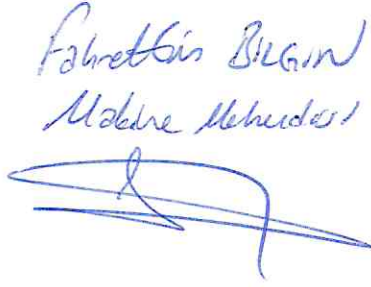 Fahrettin BİLGİN
Makine Mühendisi